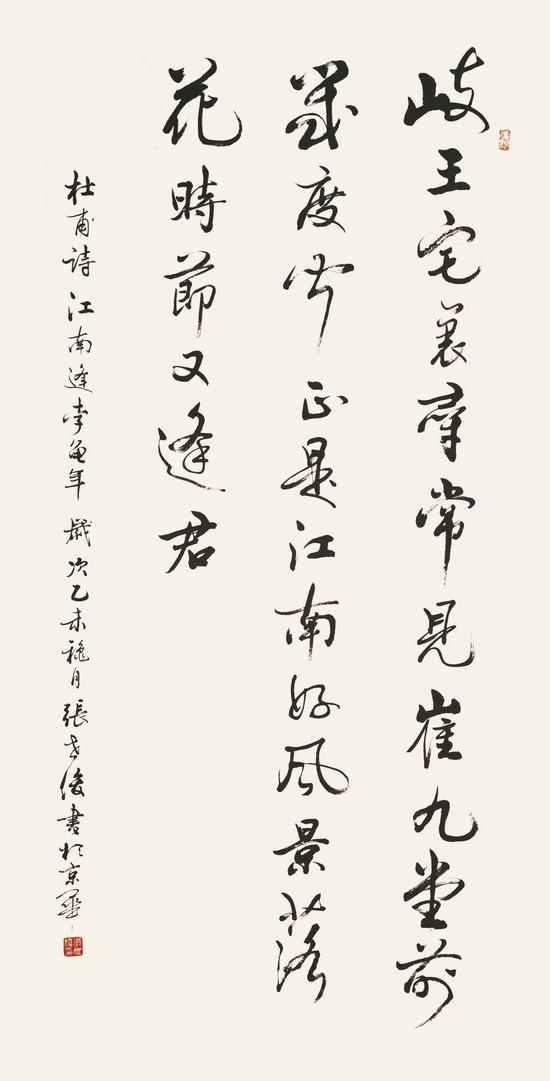 岐王宅裏尋常見崔九堂前
幾度聞正是江南好風景落
花時節又逢君
杜甫詩江南逢李龜年歲次乙未穐月張俊書於京華